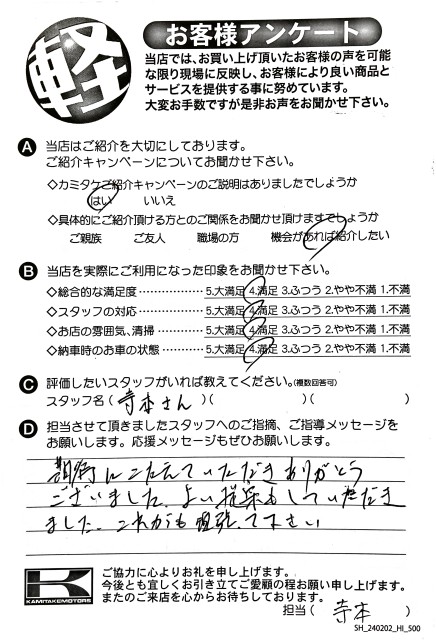 軽
お客様アンケート
当店では、お買い上げ頂いたお客様の声を可能
な限り現場に反映し、お客様により良い商品と
サービスを提供する事に努めています。
大変お手数ですが是非お声をお聞かせ下さい。
A 当店はご紹介を大切にしております。
ご紹介キャンペーンについてお聞かせ下さい。
◇カミタケご紹介キャンペーンのご説明はありましたでしょうか
はい いいえ
◇具体的にご紹介頂ける方とのご関係をお聞かせ頂けますでしょうか
ご親族 ご友人 職場の方 機会があれば紹介したい
B 当店を実際にご利用になった印象をお聞かせ下さい。
◇総合的な満足度 ・・・・・・・・・・・・ 5.大満足 4.満足 3.ふつう 2.やや不満 1.不満
◇スタッフの対応 ・・・・・・・・・・・・ 5.大満足 4.満足 3.ふつう 2.やや不満 1.不満
◇お店の雰囲気、清掃 ・・・・・・・・・ 5.大満足 4.満足 3.ふつう 2.やや不満 1.不満
◇納車時のお車の状態 ・・・・・・・・ 5.大満足 4.満足 3.ふつう 2.やや不満 1.不満
C 評価したいスタッフがいれば教えてください。(複数回答可)
スタッフ名 ( 寺本さん ) ( ) ( )
D 担当させて頂きましたスタッフへのご指摘、ご指導メッセージを
お願いします。応援メッセージもぜひお願いします。
期待にこたえていただきありがとう
ございました。よい提案もしていただき
ました。これからも頑張って下さい
K
KAMITAKEMOTORS
ご協力に心よりお礼を申し上げます。
今後とも宜しくお引き立てご愛顧の程お願い申し上げます。
またのご来店を心からお待ちしております。
担当 ( 寺本 )
SH_240202_HI_500